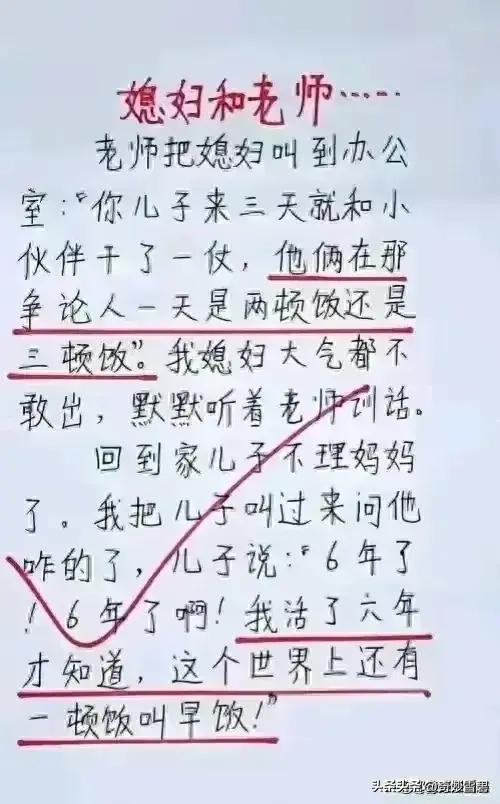 媳妇和老师……
老师把媳妇叫到办公
室:“你儿子来三天就和小
伙伴干了一仗,他俩在那
争论人一天是两顿饭还是
三顿饭”。我媳妇大气都不
敢出,默默听着老师训话。
回到家儿子不理妈妈
了。我把儿子叫过来问他
咋的了,儿子说:“6年了
!6年了啊!我活了六年
才知道,这个世界上还有
一顿饭叫早饭!”
头条头条@奇妙雪碧